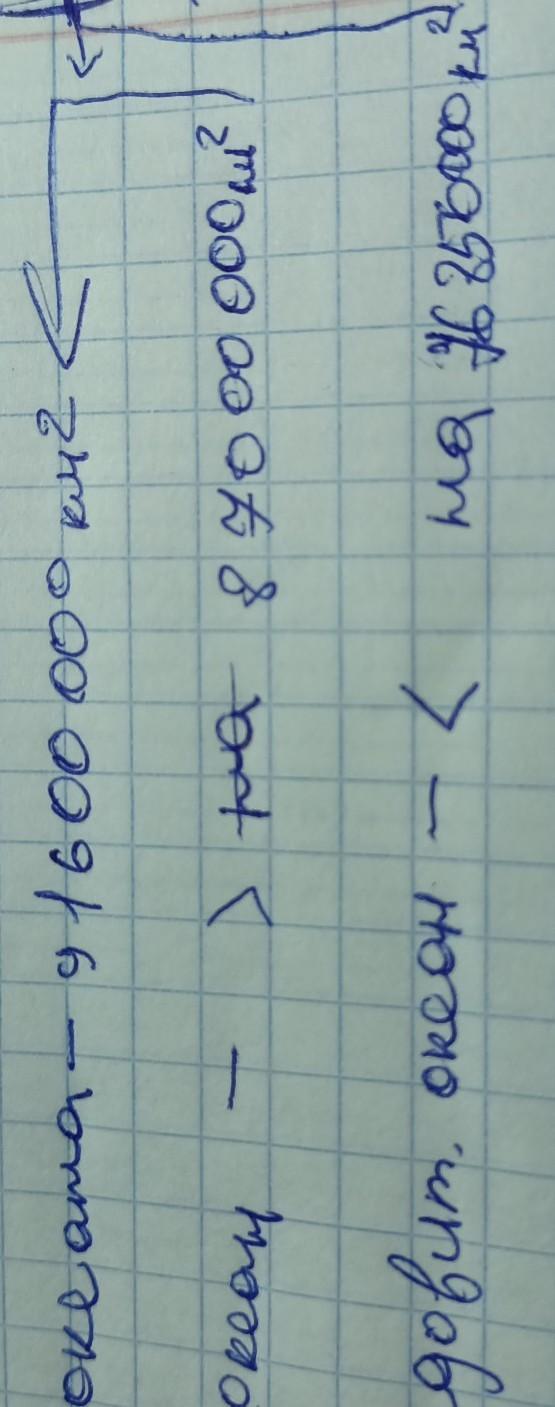 океана - 91600000 км²
океан - > на 8700000 км²
довит. океан - < на 76250000 км²